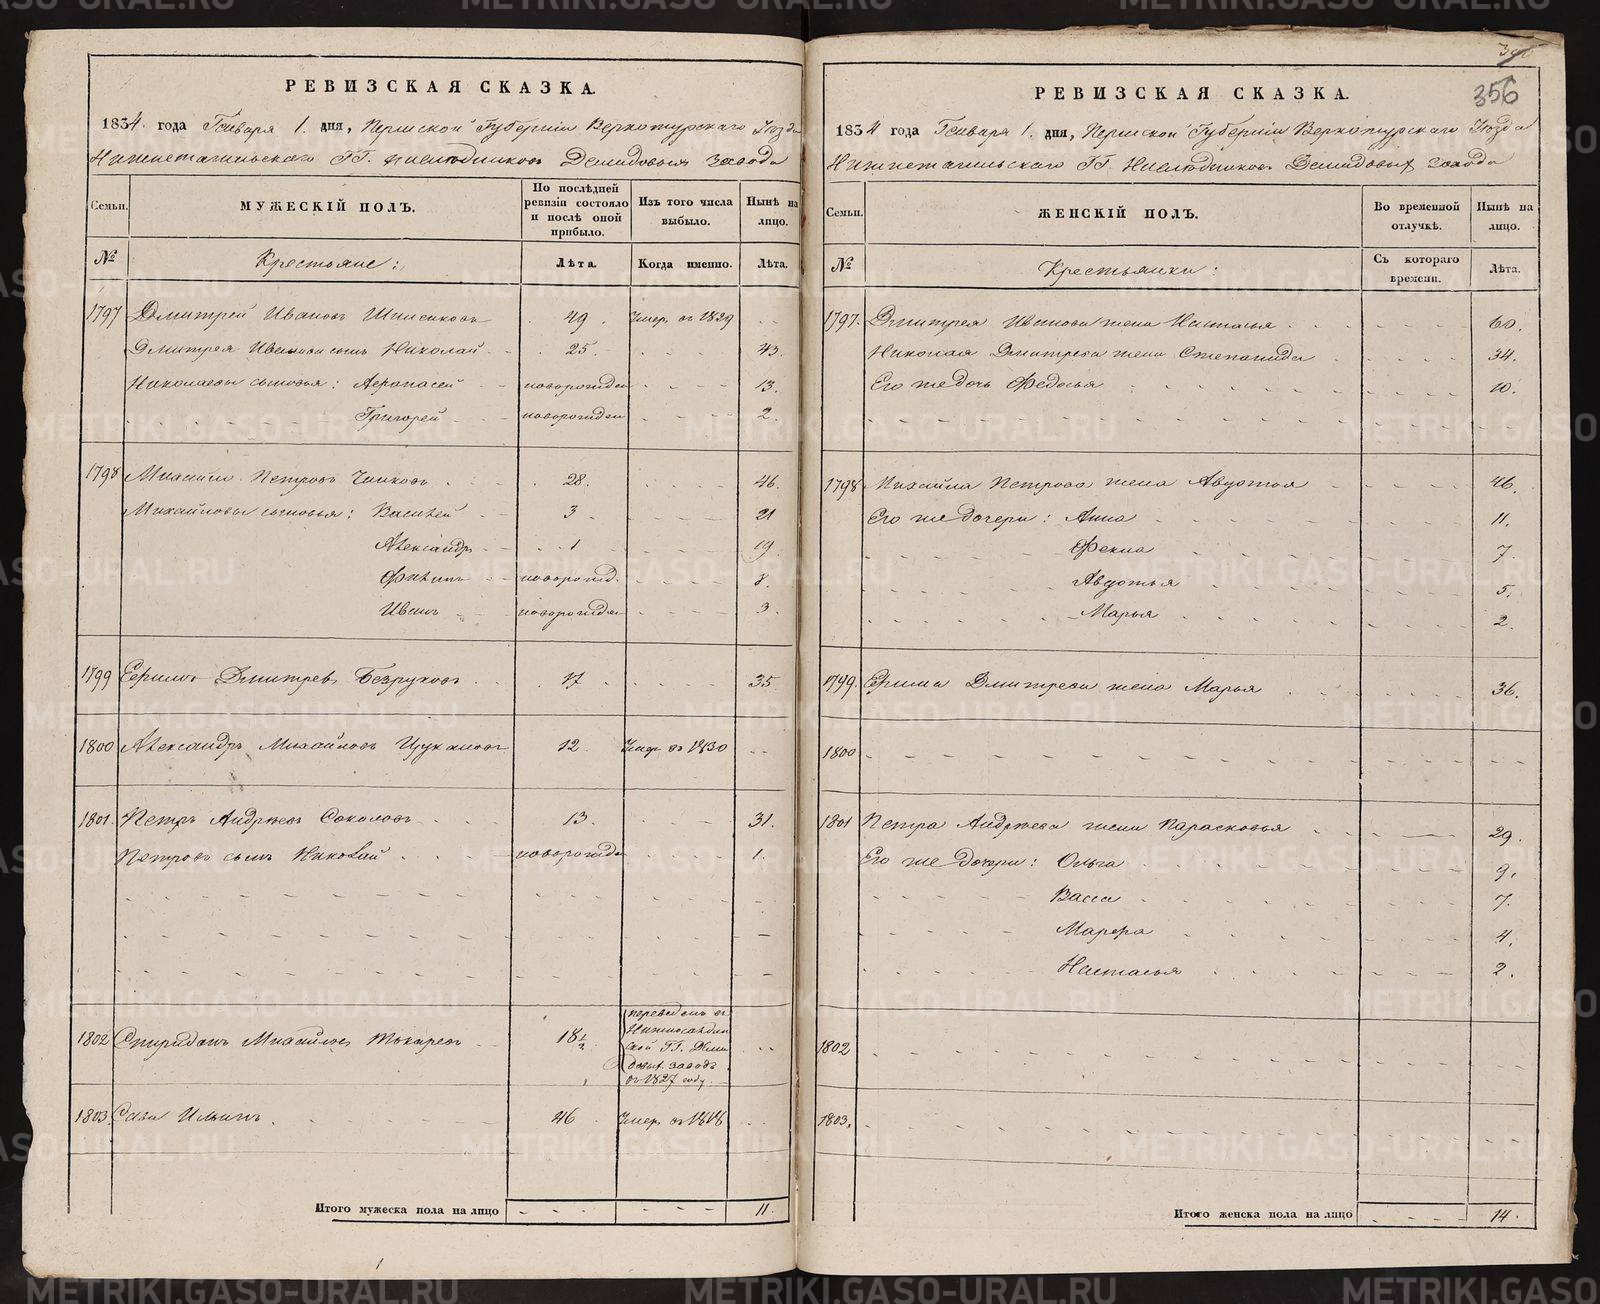 РЕВИЗСКАЯ СКАЗКА.
1834. года Генваря 1. дня, Пермской Губернии Верхотурскаго Уезда
Нижнетагильскаго ГГ. Наследников Демидовых завода
Семьи.
МУЖЕСКІЙ ПОЛЪ.
По послѣдней ревизіи состояло и послѣ оной прибыло.
Изъ того числа выбыло.
Нынѣ на лицо.
№
Крестьяне:
Лѣта.
Когда именно.
Лѣта.
1797 Дмитрей Ивановъ 49. Умер. въ 1829
Дмитрея Иванова сынъ Николай 25. 43.
Николаевы сыновья: Афонасей новорожден 13.
Григорей новорожден 2.
1798 Михайло Петровъ 28. 46.
Михайловы сыновья: Василей 3 21
Александръ 1 19.
Филипъ новорожд. 8.
Иванъ новорожден 3.
1799 Ефимъ Дмитревъ Безруковъ 17 35
1800 Александръ Михайловъ Цукановъ 12. Умер въ 1830
1801. Петръ Андреевъ Соколовъ 13. 31.
Петровъ сынъ Николай новорожден 1.
1802 Спиридонъ Михайловъ Токаревъ 18½ переведенъ въ
ГГ. Деми
довых. заводъ
въ 1827 году.
1803. Сава Ильинъ. 46 Умер. въ 1818
Итого мужеска пола на лицо 11.
356
РЕВИЗСКАЯ СКАЗКА.
1834 года Генваря 1. дня, Пермской Губернии Верхотурскаго Уезда
Нижнетагильскаго ГГ. Наследников Демидовых завода
Семьи.
ЖЕНСКІЙ ПОЛЪ.
Во временной отлучкѣ.
Нынѣ на лицо.
№
Крестьянки:
Съ котораго времени.
Лѣта.
1797. Дмитрея Иванова жена Настасья 60.
Николая Дмитрева жена Степанида 34.
Его же дочь Федосья 10.
1798 Михайла Петрова жена Авдотья 46.
Его же дочери: Анна 11.
Фекла 7.
Авдотья 5.
Марья 2.
1799. Ефима Дмитрева жена Марья 36.
1800
1801 Петра Андреева жена Парасковья 29.
Его же дочери: Ольга 9.
Васса 7.
Марфа 4.
Настасья 2.
1802
1803.
Итого женска пола на лицо 14.
METRIKI.GASO-URAL.RU